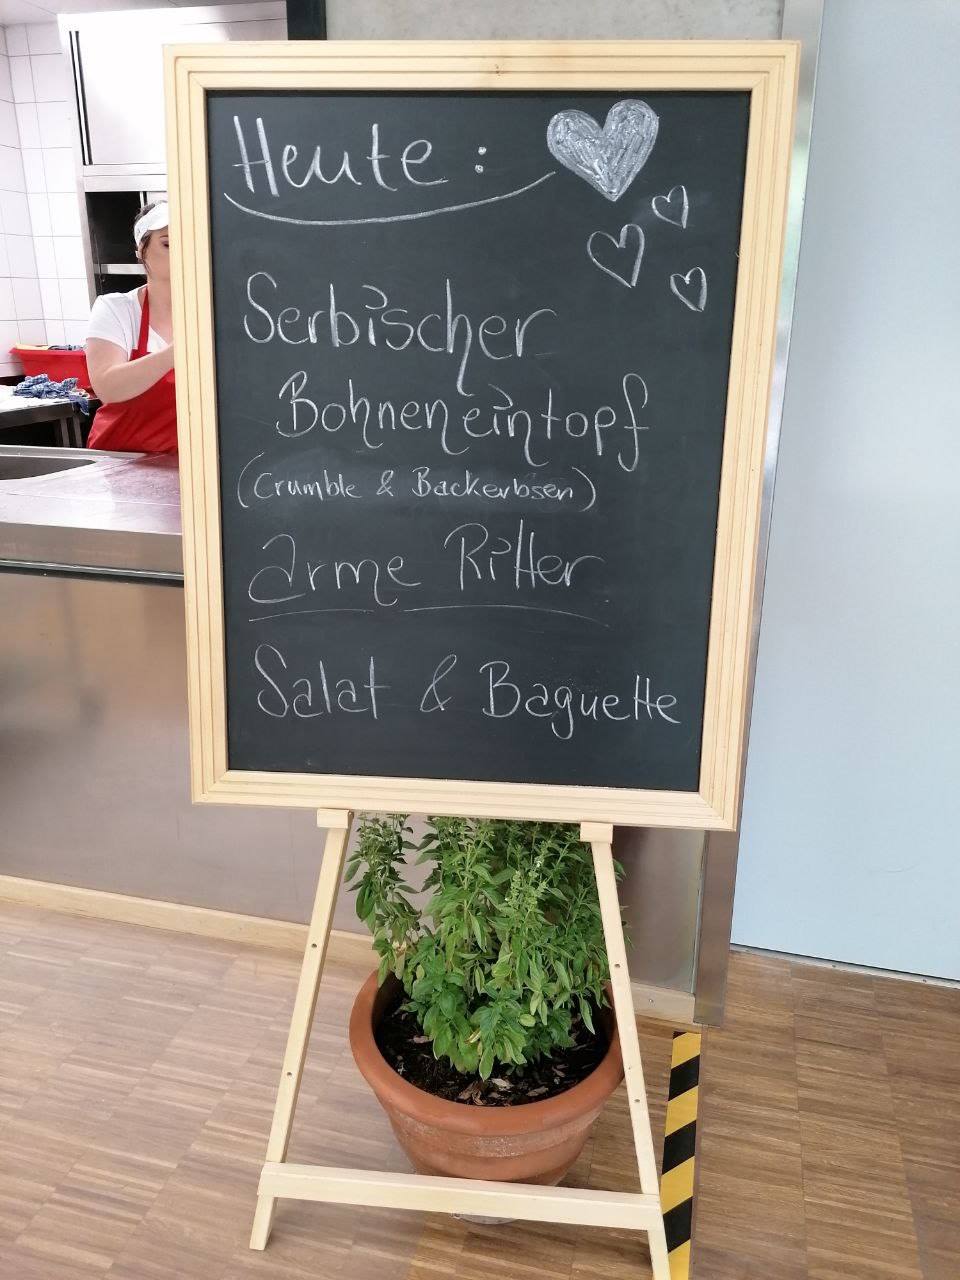 Heute :
Serbischer
Bohneneintopf
(Crumble & Backerbsen)
Arme Ritter
Salat & Baguette